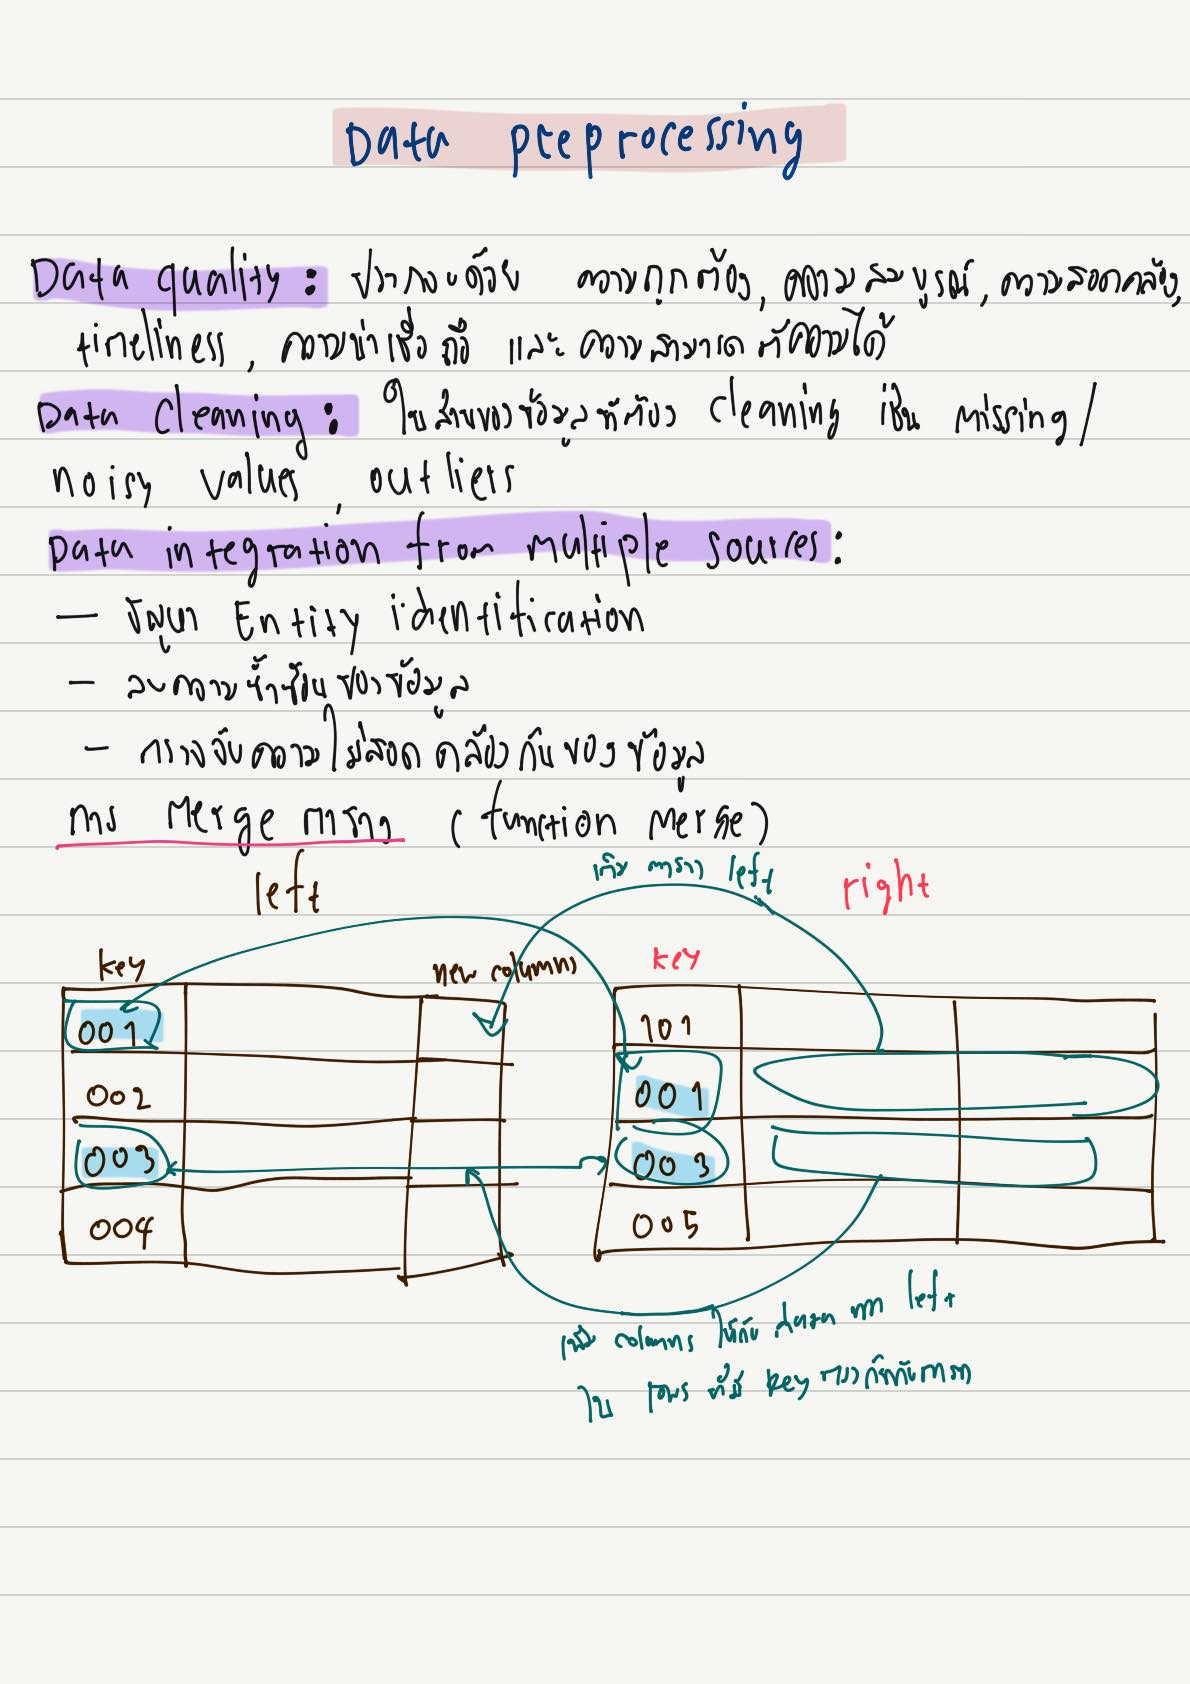 Data preprocessing
Data quality : ประกอบด้วย ความถูกต้อง, ความสมบูรณ์, ความสอดคล้อง,
timeliness, ความน่าเชื่อถือ และ ความสามารถตีความได้
Data Cleaning : ในส่วนของข้อมูลที่ต้อง cleaning เช่น missing/
noisy values, outliers
Data integration from multiple sources :
— ปัญหา Entity identification
— ลบความซ้ำซ้อนของข้อมูล
— ตรวจจับความไม่สอดคล้องกันของข้อมูล
การ Merge ตาราง (function Merge)
เติม ตาราง left
left right
key new columns key
001 101
002 001
003 003
004 005
เพิ่ม columns ให้กับ left
ใน rows ที่มี key ตรงกัน